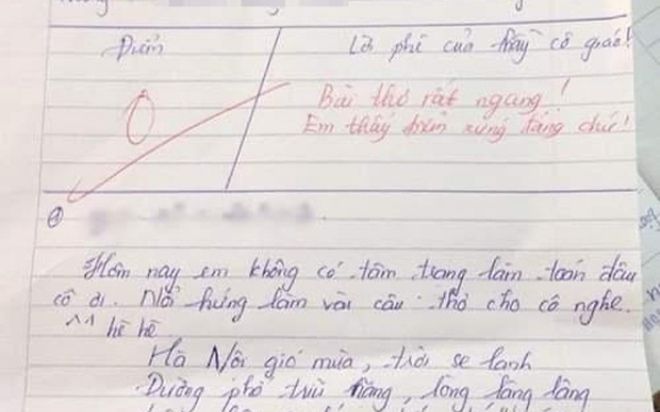 Điểm
Lời phê của thầy cô giáo!
0
Bài thơ rất ngang!
Em thấy điểm xứng đáng chứ!
Hôm nay em không có tâm trạng làm toán đâu
cô ơi. Nổi hứng làm vài câu thơ cho cô nghe.
^^ hề hề
Hà Nội gió mùa, trời se lạnh
Đường phố trĩu nặng, lòng lâng lâng